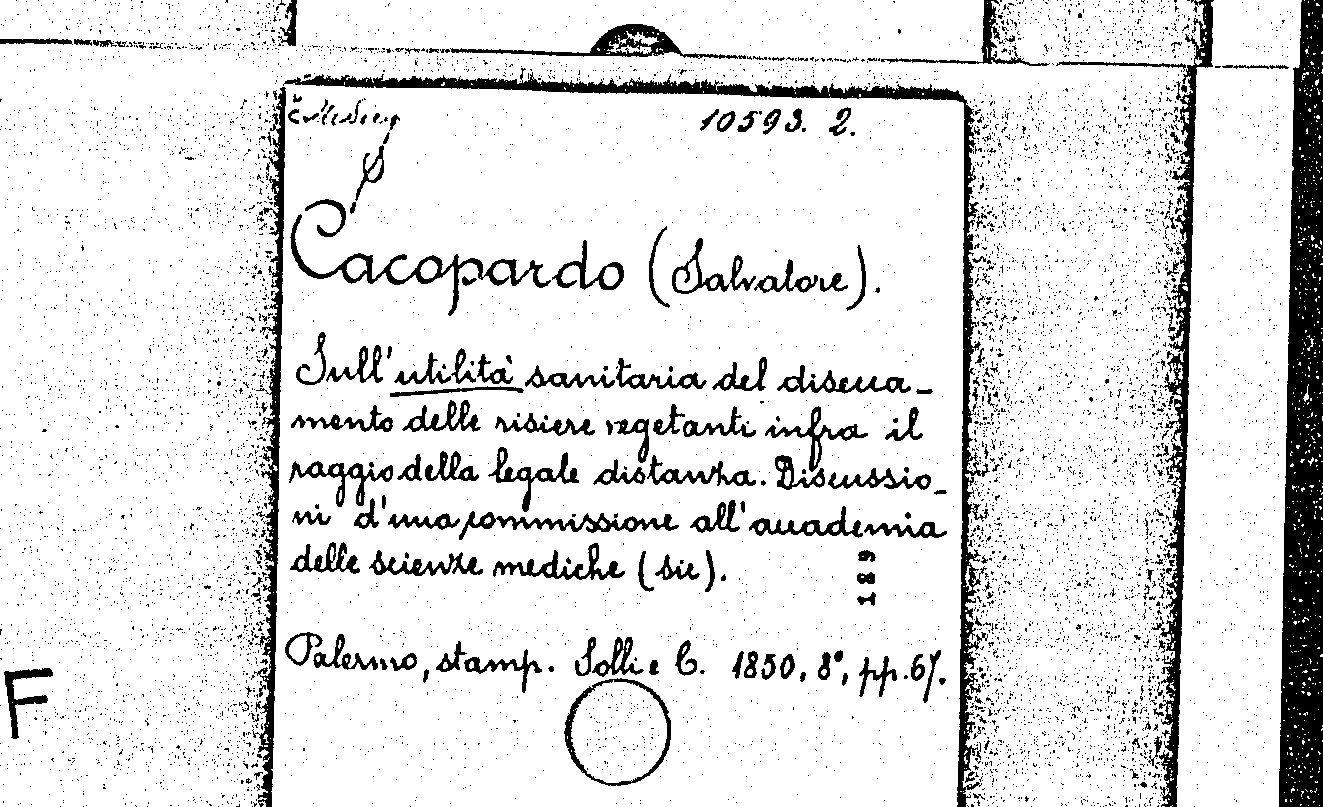 10593. 2.
Cacopardo (Salvatore).
Sull'utilità sanitaria del disecca-
mento delle risiere vegetanti infra il
raggio della legale distanza. Discussio-
ni d'una commissione all'accademia
delle scienze mediche (sic).
189
Palermo, stamp. Solli e C. 1850. 8°, pp. 67.
F